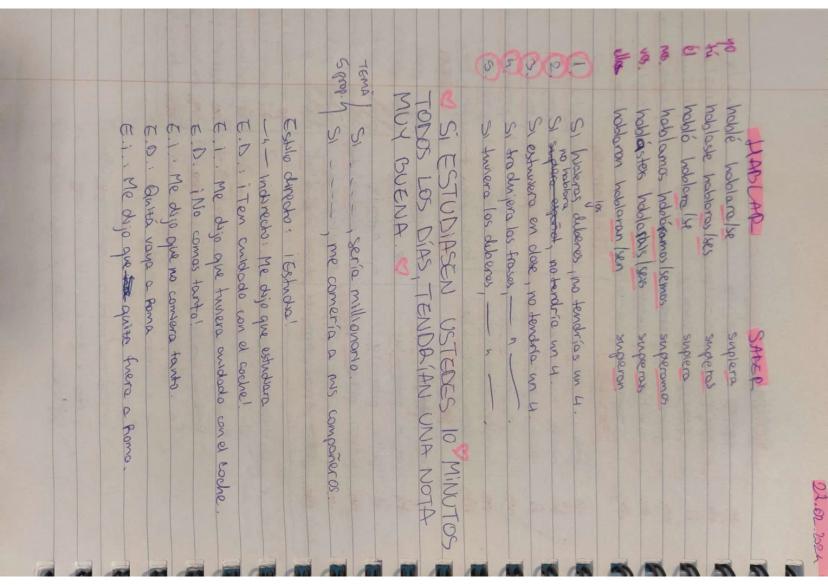 22.02.2024
HABLAR SABER
yo hablé hablara/se supiera
tú hablaste hablaras/ses supieras
él habló hablara/se supiera
nos. hablamos habláramos/semos supieramos
vos. hablasteis hablarais/seis supierais
ellos hablaron hablaran/sen supieran
1. Si hicieras los deberes, no tendrías un 4.
2. Si supiera español, no hablara no tendría un 4.
3. Si estuviera en clase, no tendría un 4
4. Si tradujera las frases, — " — .
5. Si tuviera los deberes, — " — .
♡ SI ESTUDIASEN USTEDES 10 MINUTOS ♡
TODOS LOS DÍAS, TENDRÍAN UNA NOTA
MUY BUENA. ♡
TEMA / Si - - - - , sería millonario.
5 prop. / Si - - - - , me comería a mis compañeros.
Estilo directo: ¡Estudia!
— " — Indirecto: Me dijo que estudiara
E.D.: ¡Ten cuidado con el coche!
E.I.: Me dijo que tuviera cuidado con el coche.
E.D.: ¡No comas tanto!
E.I.: Me dijo que no comiera tanto.
E.D.: Quizá vaya a Roma
E.I.: Me dijo que quizá fuera a Roma.